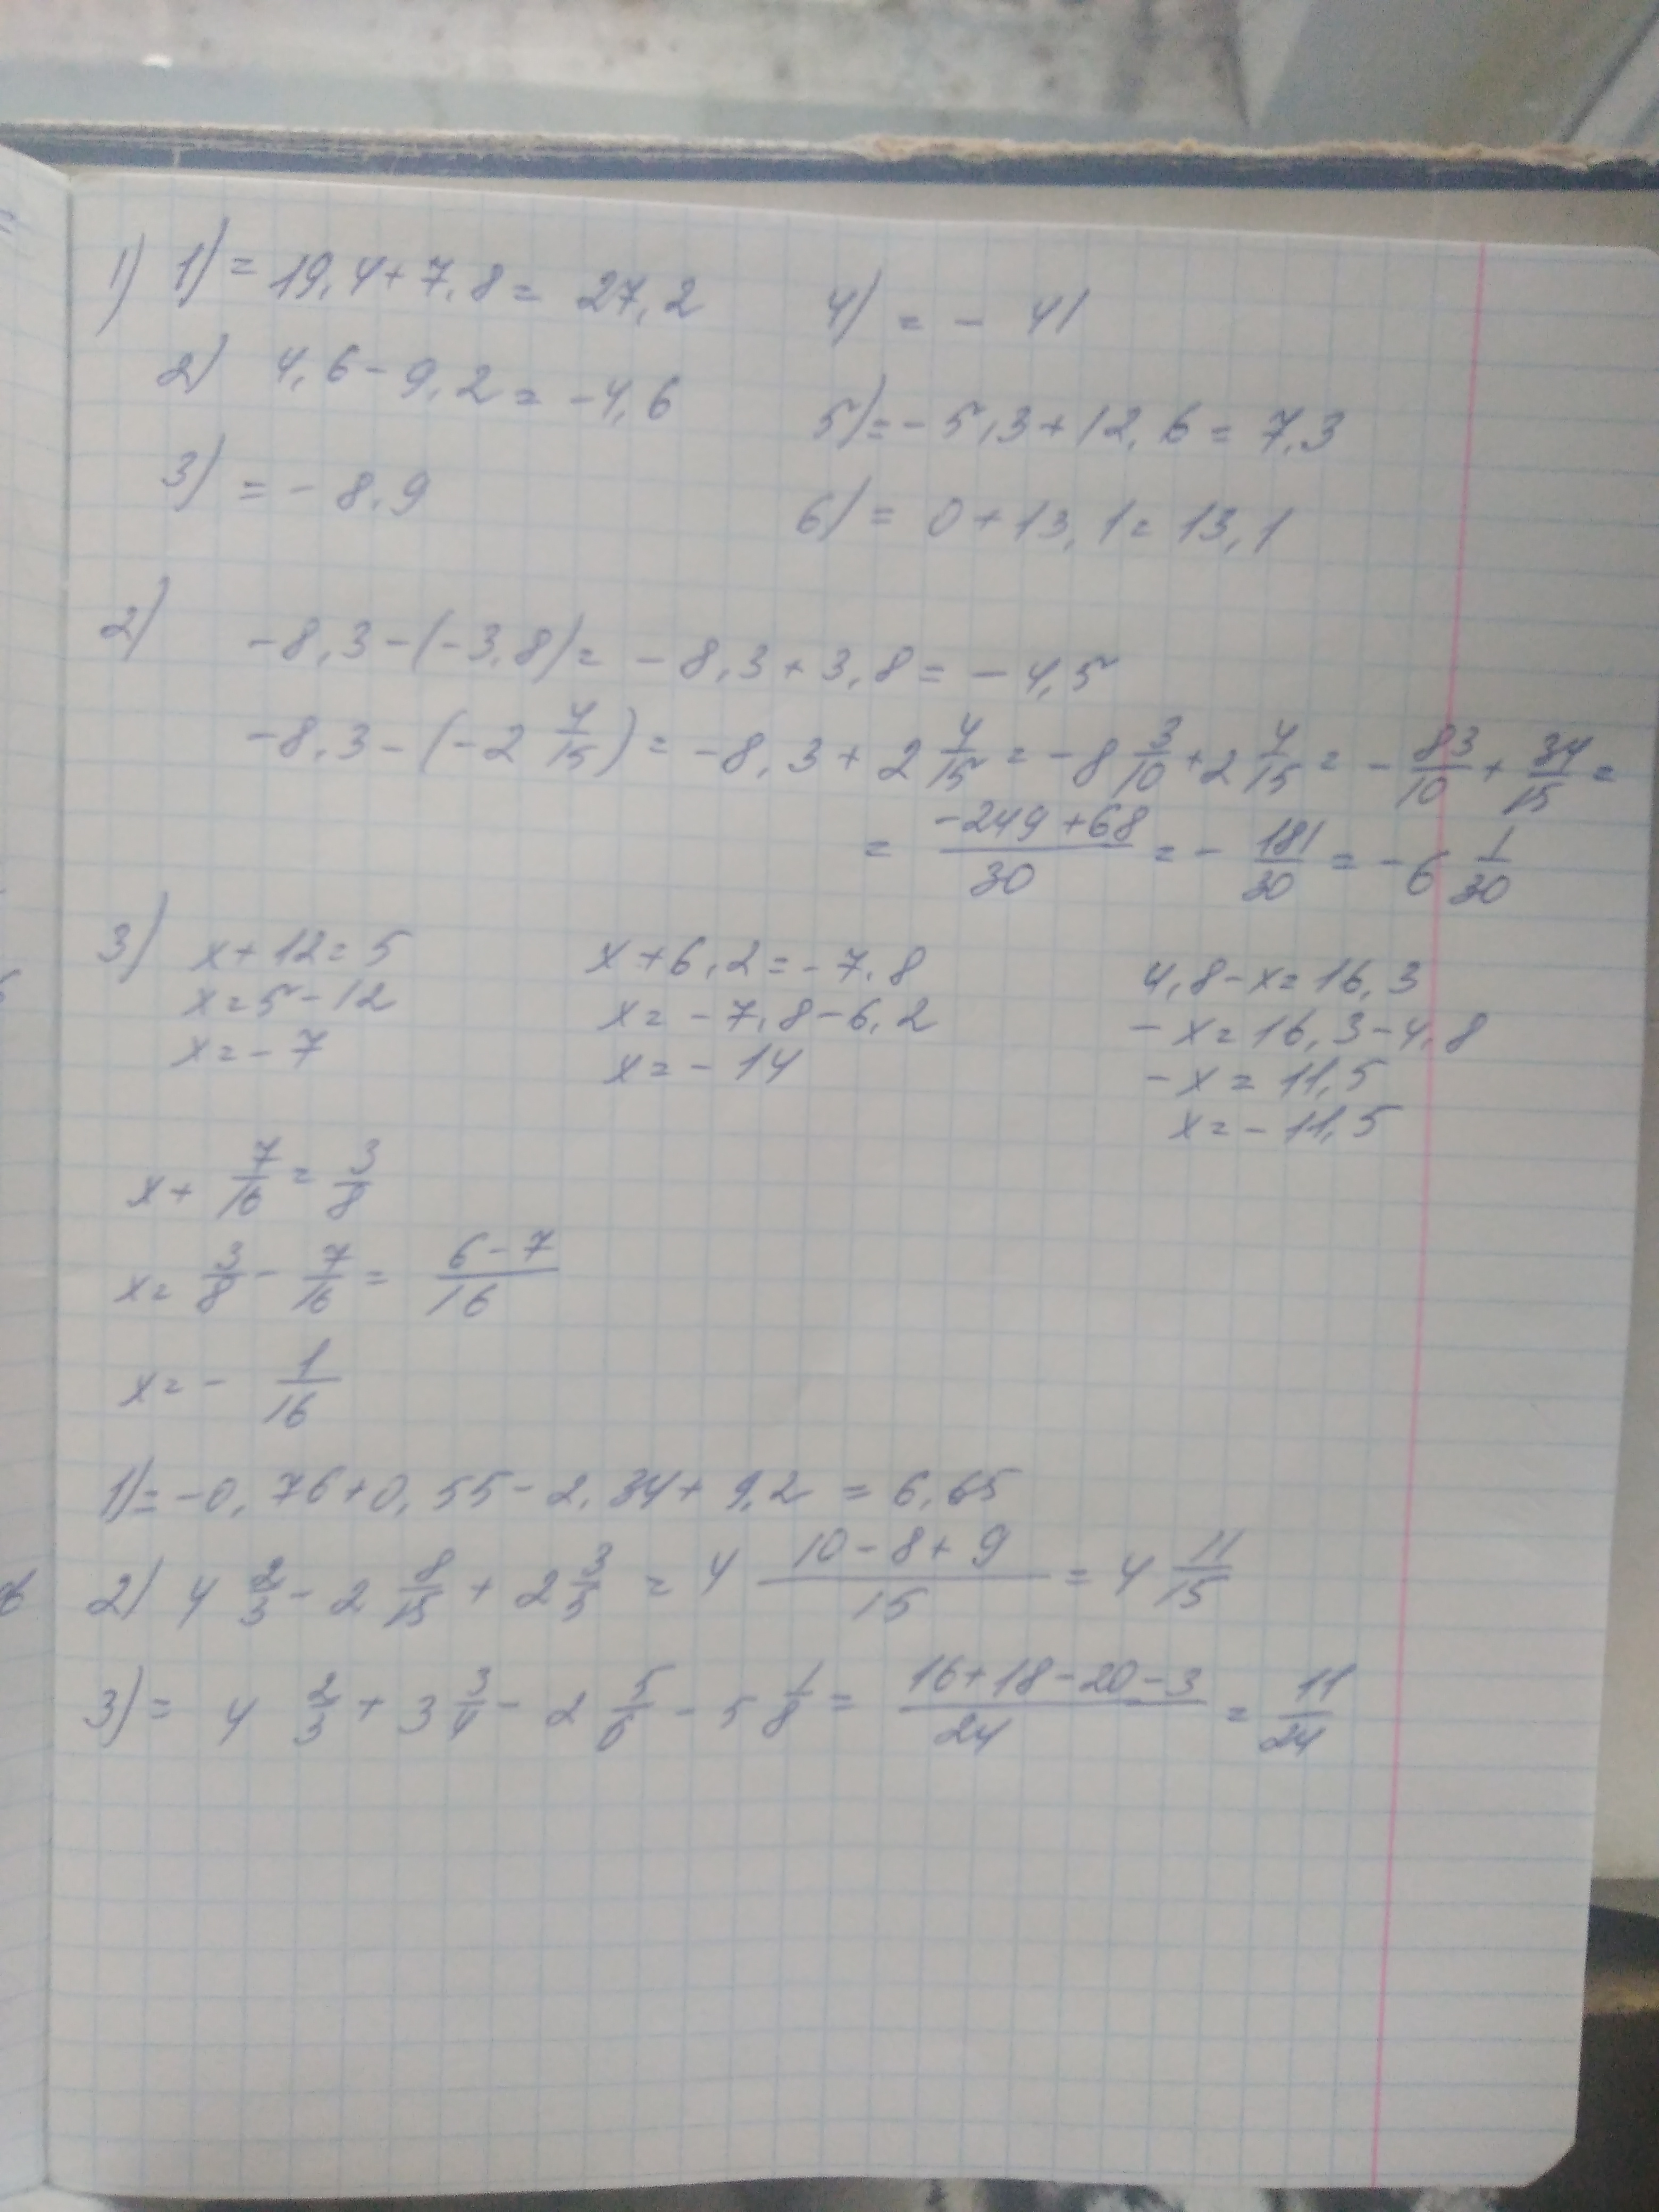 1) 1) = 19,4 + 7,8 = 27,2
2) 4,6 - 9,2 = -4,6
3) = - 8,9
4) = - 41
5) = - 5,3 + 12,6 = 7,3
6) = 0 + 13,1 = 13,1
2) -8,3 - (-3,8) = -8,3 + 3,8 = -4,5
-8,3 - (-2 4/15) = -8,3 + 2 4/15 = -8 3/10 + 2 4/15 = - 83/10 + 34/15 =
= (-249 + 68)/30 = - 181/30 = -6 1/30
3) x + 12 = 5
x = 5 - 12
x = - 7
x + 6,2 = - 7,8
x = - 7,8 - 6,2
x = - 14
4,8 - x = 16,3
- x = 16,3 - 4,8
- x = 11,5
x = - 11,5
x + 7/16 = 3/8
x = 3/8 - 7/16 = (6 - 7)/16
x = - 1/16
1) = -0,76 + 0,55 - 2,34 + 9,2 = 6,65
2) 4 2/3 - 2 8/15 + 2 3/5 = 4 (10 - 8 + 9)/15 = 4 11/15
3) = 4 2/3 + 3 3/4 - 2 5/6 - 5 1/8 = (16 + 18 - 20 - 3)/24 = 11/24